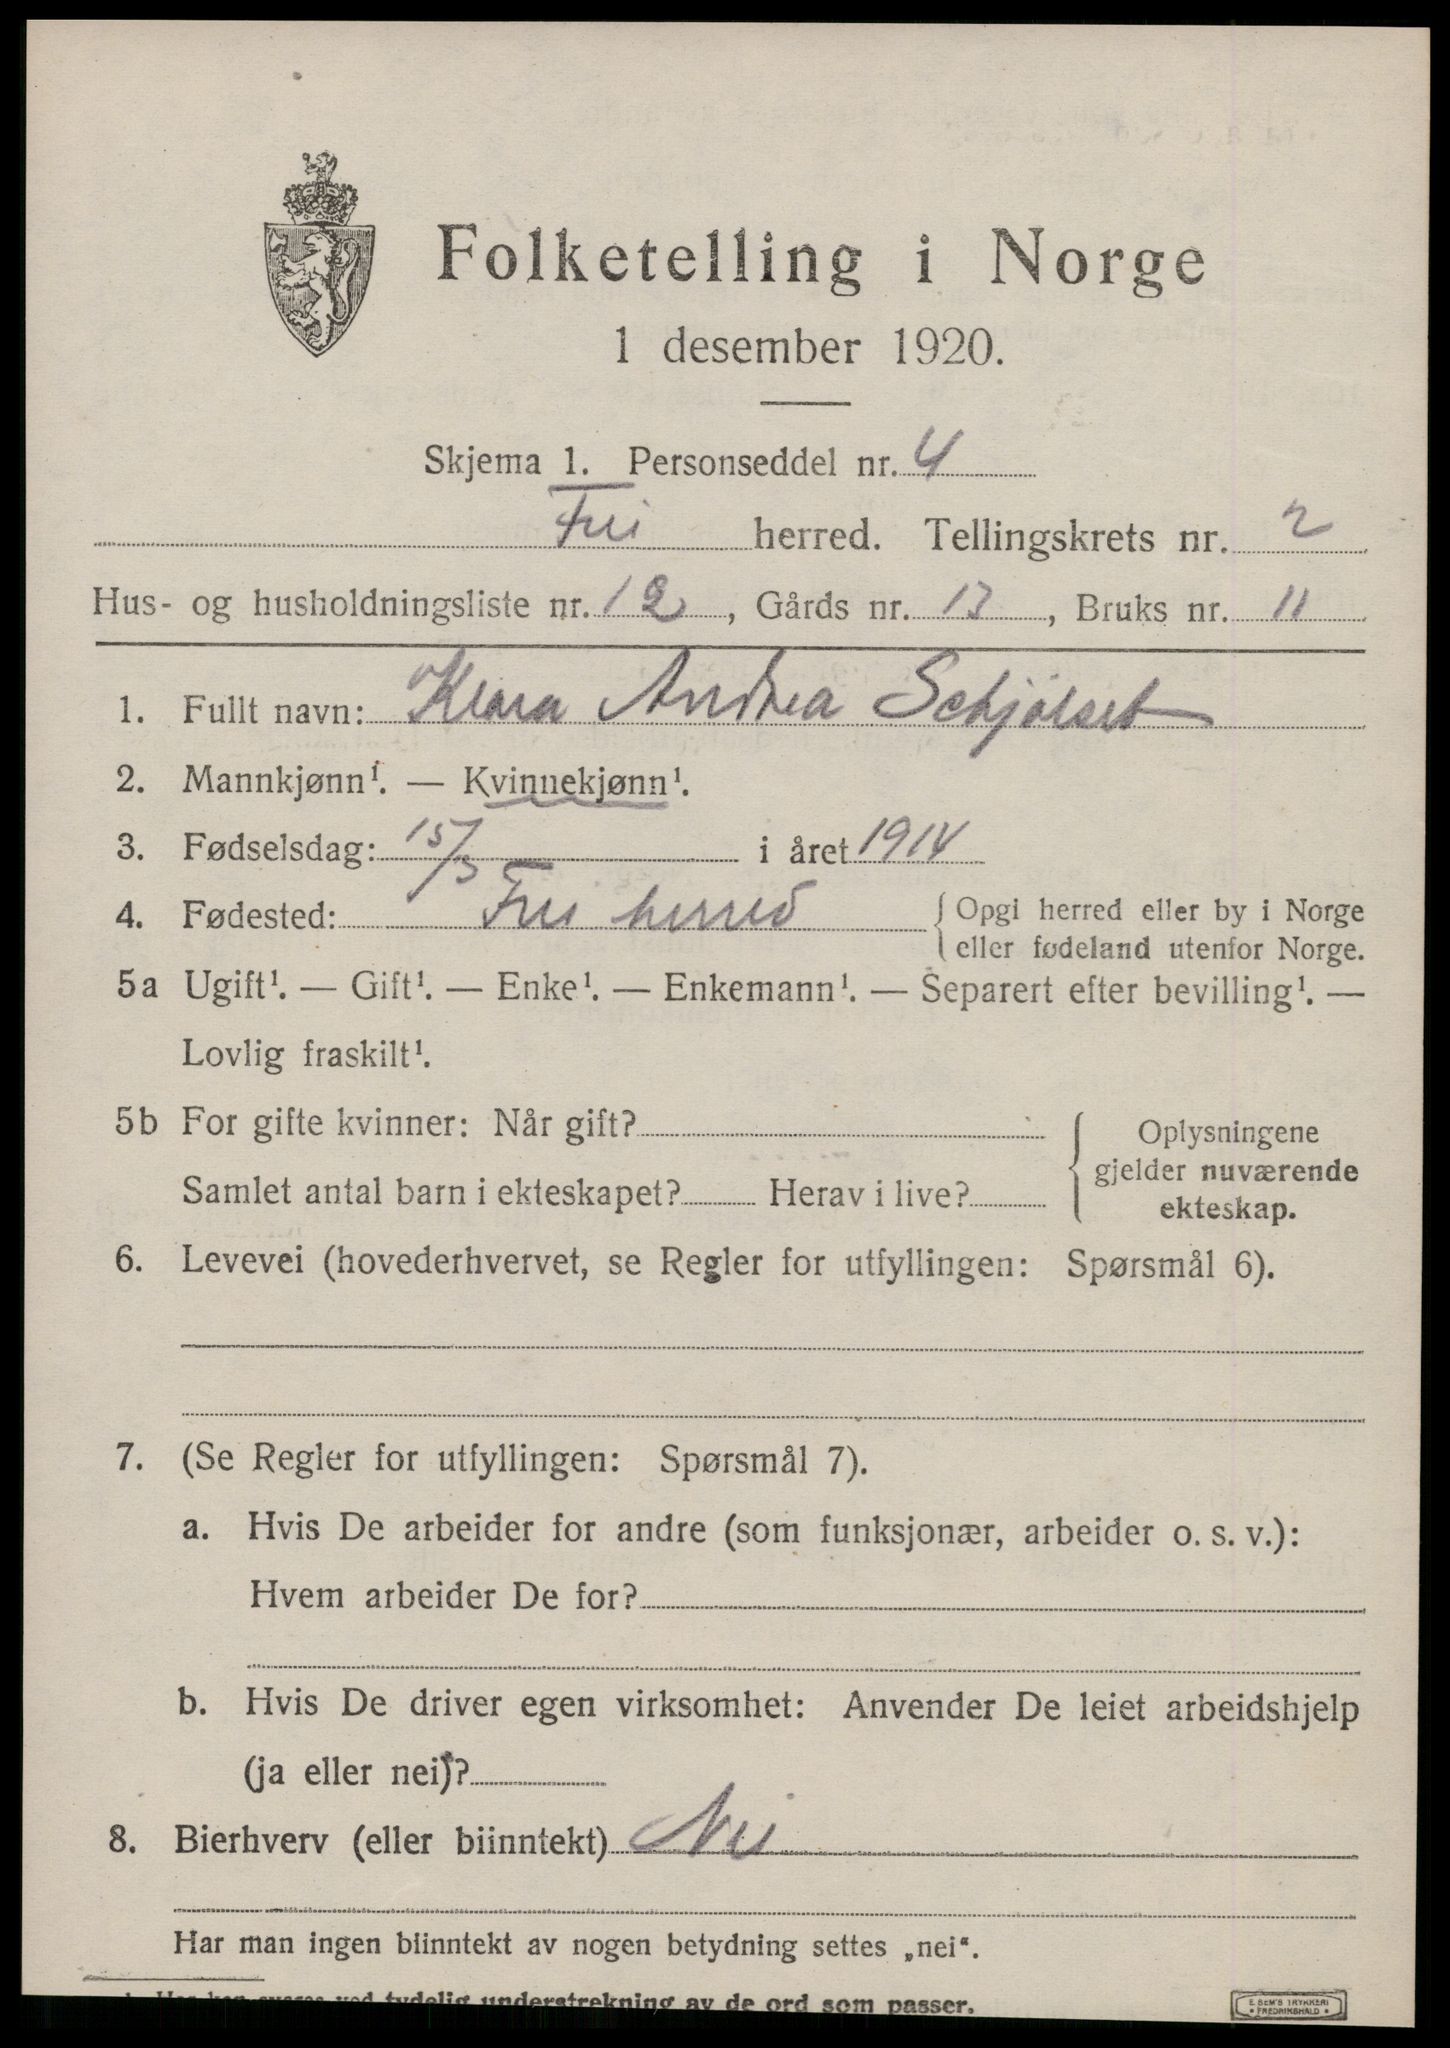 Folketelling i Norge
1 desember 1920.
Skjema 1. Personseddel nr. 4
Frei herred. Tellingskrets nr. 2
Hus- og husholdningsliste nr. 12, Gårds nr. 13, Bruks nr. 11
1. Fullt navn: Klara Andrea Schjølset
2. Mannkjønn¹. — Kvinnekjønn¹.
3. Fødselsdag: 15/3 i året 1914
4. Fødested: Frei herred { Opgi herred eller by i Norge
eller fødeland utenfor Norge.
5a Ugift¹. — Gift¹. — Enke¹. — Enkemann¹. — Separert efter bevilling¹. —
Lovlig fraskilt¹.
5b For gifte kvinner: Når gift? { Oplysningene
gjelder nuværende
Samlet antal barn i ekteskapet? Herav i live?
ekteskap.
6. Levevei (hovederhvervet, se Regler for utfyllingen: Spørsmål 6).
7. (Se Regler for utfyllingen: Spørsmål 7).
a. Hvis De arbeider for andre (som funksjonær, arbeider o. s. v.):
Hvem arbeider De for?
b. Hvis De driver egen virksomhet: Anvender De leiet arbeidshjelp
(ja eller nei)?
8. Bierhverv (eller biinntekt) Nei
Har man ingen biinntekt av nogen betydning settes „nei“.
¹ Her kan svares ved tydelig understrekning av de ord som passer.
E. SEM'S TRYKKERI
• FREDRIKSHALD •